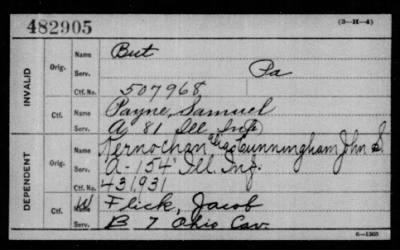 482905
(3-H-4)
INVALID
Orig.
Name But
Serv. Pa
Ctf. No. 507968
Ctf.
Name Payne, Samuel
Serv. A, 81 Ill Inf
DEPENDENT
Orig.
Name Vernochan alias Cunningham, John S.
Serv. A. 154 Ill. Inf.
Ctf. No. 431,931
Ctf.
Name W Flick, Jacob
Serv. B 7 Ohio Cav.
6-1305